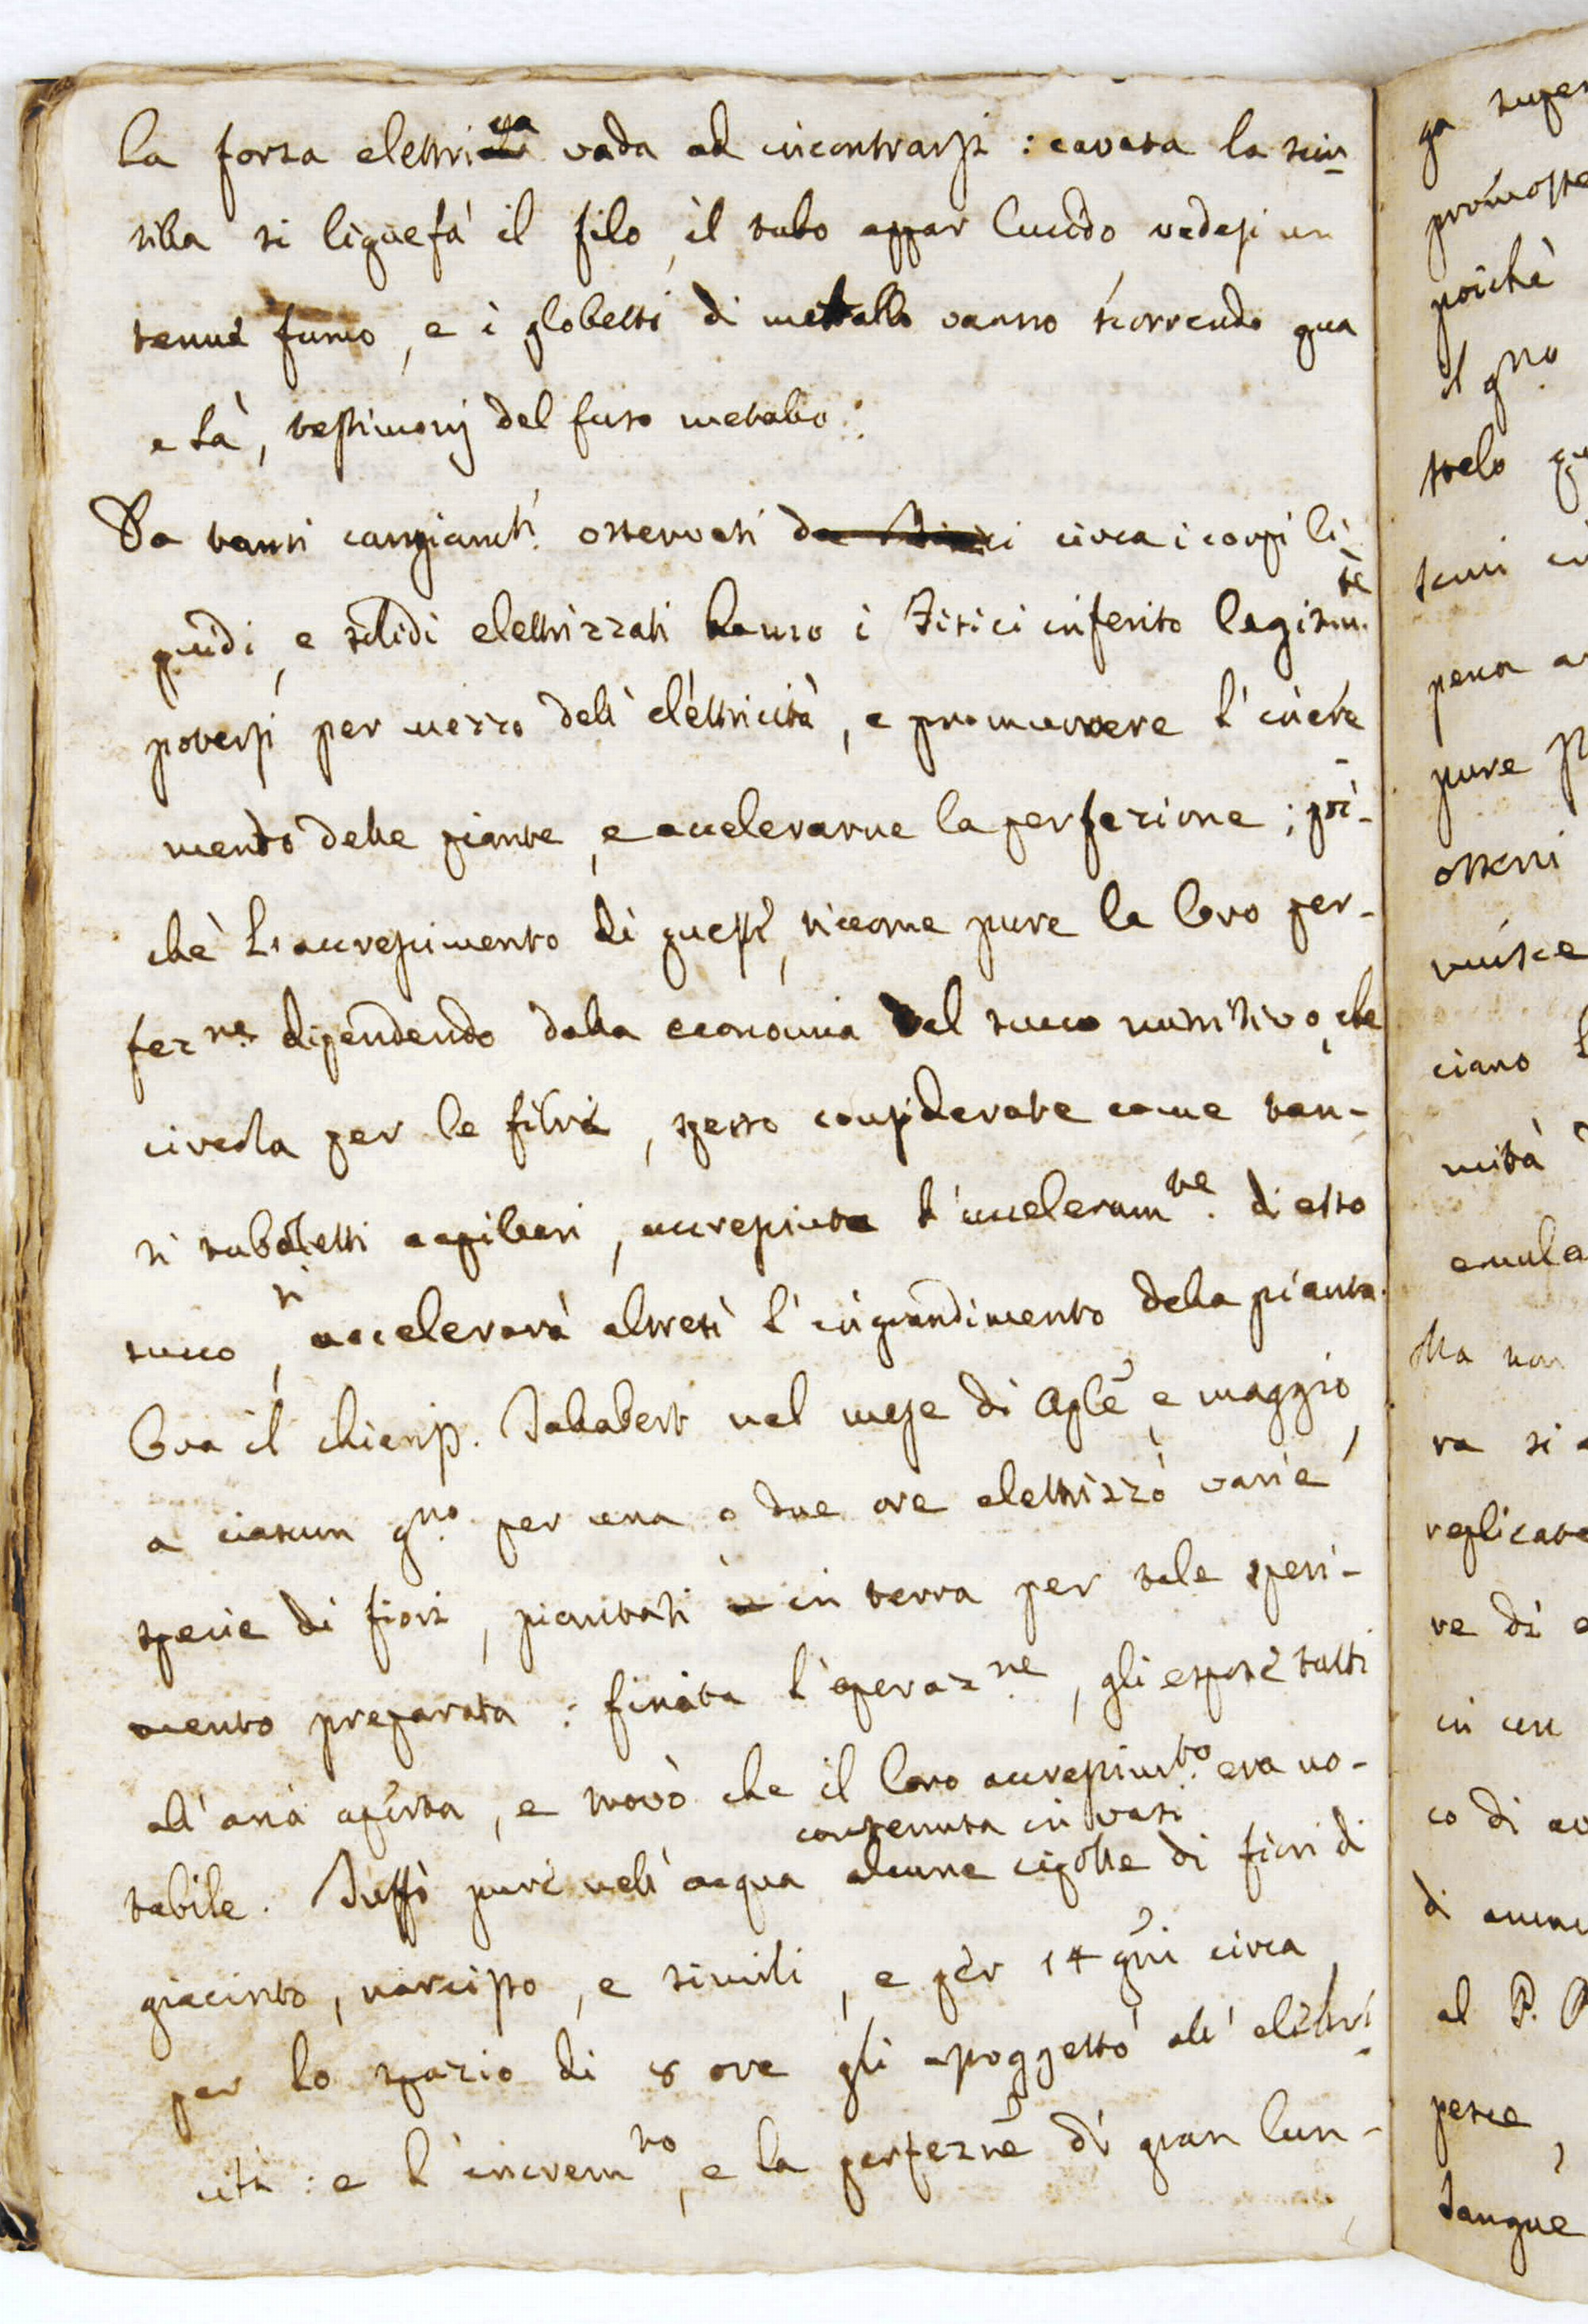 la forza elettrica vada ad incontrarsi : cavata la scin-
tilla si liquefà il filo, il tubo appar lucido vedesi un
tenue fumo, e i globetti di metallo vanno scorrendo qua
e là, testimonj del fuso metallo.
Da tanti cangiamti. osservati da Fisici circa i corpi li-
quidi, e solidi elettrizzati hanno i Fisici inferito legitim.te
potersi per mezzo dell' elettricità, e promuovere l' incre-
mento delle piante, e accelerarne la perfezione ; poi-
chè l' accrescimento di queste, siccome pure la loro per-
fez.ne dipendendo dalla economia del succo nutritivo, che
circola per le fibre, spesso considerate come tan-
ti tuboletti capillari, accresciuta l' acceleram.ne di esso
succo, si accelerarà altresì l' ingrandimento della pianta.
Ora il chiariss. Jallabert nel mese di Aple e maggio,
a ciascun g.no per una o due ore elettrizzò varie
specie di fiori, piantati in terra per tale speri-
mento preparata : finita l' operaz.ne, gli espose tutti
all' aria aperta, e trovò che il loro accrescim.to era no-
tabile. Tuffò pure nell' acqua contenuta in vasi alcune cipolle di fiori di
giacinto, narcisso, e simili, e per 14 gni circa
per lo spazio di 8 ore gli assoggettò all' elettri-
cità : e l' increm.to, e la perfezne di gran lun-
ga super
promosse
poichè
il g.no
stelo
pure
osservi
ciano
mità
emula
Ma non
ra si
replicate
re di
in un
co di
di
al P.
pesce,
sangue